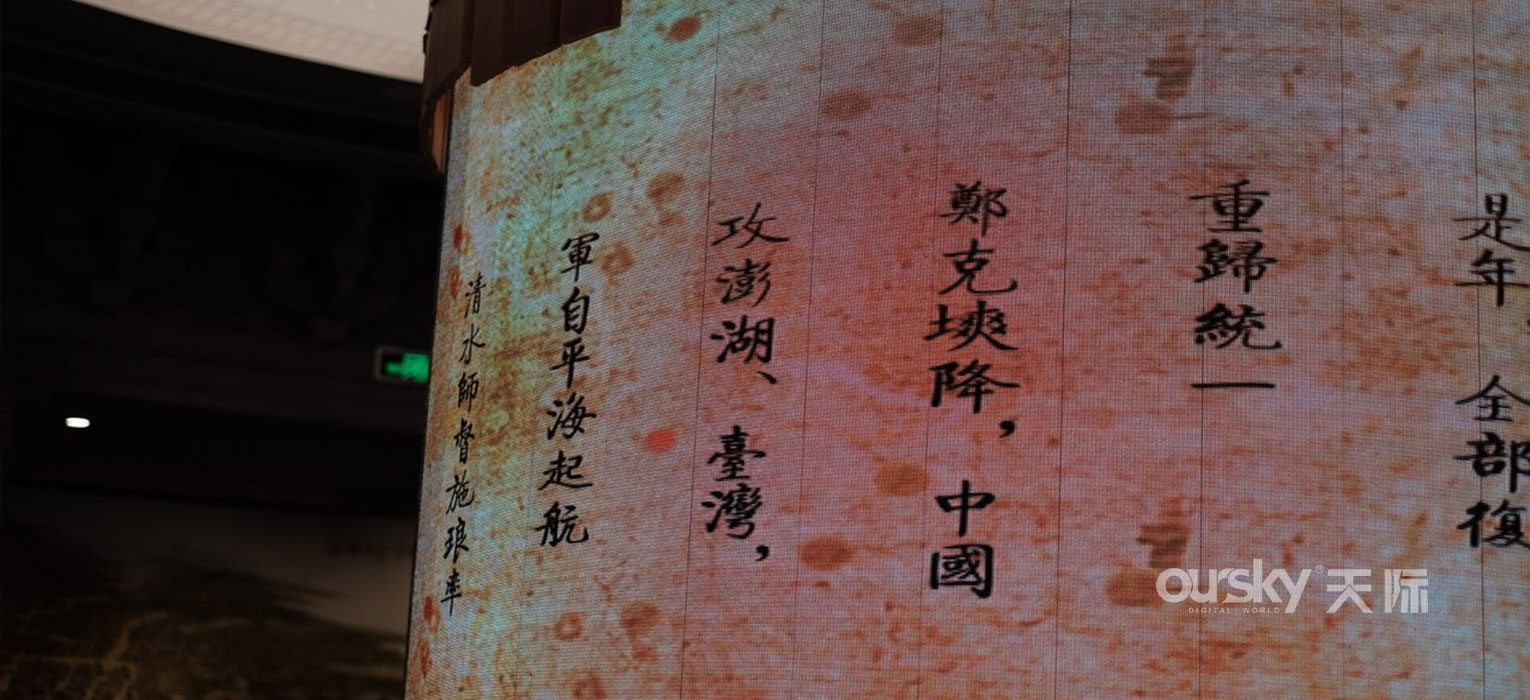 清水師督施琅率
軍自平海起航
攻澎湖、臺灣，
鄭克塽降，中國
重歸統一
是年，全部復
oursky®天际
DIGITAL WORLD